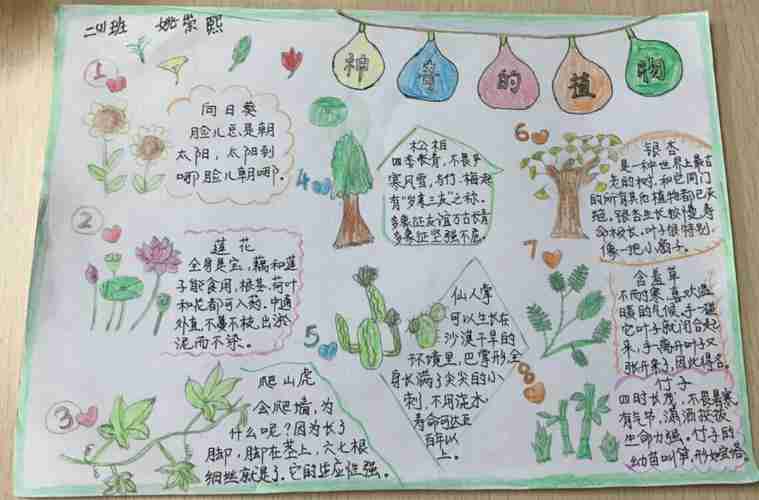 二四班 姚崇熙
神奇的植物
1
向日葵
脸儿总是朝
太阳，太阳到
哪脸儿朝哪。
2
莲花
全身是宝，藕和莲
子能食用，根茎、荷叶
和花都可入药。中通
外直，不蔓不枝，出淤
泥而不染。
3
爬山虎
会爬墙，为
什么呢？因为长了
脚，脚在茎上，六七根
细丝就是了。它的适应性强。
4
松柏
四季常青，不畏严
寒风雪，与竹、梅起
有“岁寒三友”之称。
多象征友谊万古长青
多象征坚强不屈。
5
仙人掌
可以生长在
沙漠干旱的
环境里，巴掌形全
身长满了尖尖的小
刺，不用浇水
寿命可达五
百年以
上。
6
银杏
是一种世界上最古
老的树，和它同门
的所有其他植物都已灭
绝，银杏生长较慢，寿
命极长，叶子很特别，
像一把小扇子。
7
含羞草
不耐寒，喜欢温
暖的气候，手一碰
它叶子就闭合起
来，手离开叶子又
张开来了，因此得名。
8
竹子
四时长茂，不畏暑寒，
有气节，潇洒挺拔
生命力强。竹子的
幼苗叫笋，形如宝塔。